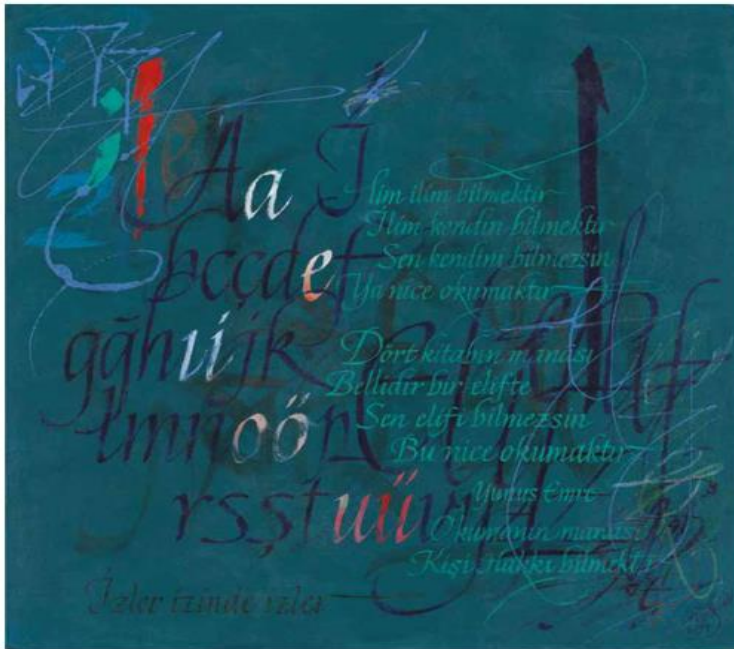 Aa
bcçdef
gğhıijk
lmnoöp
rsştuüvyz
İlim ilim bilmektir
İlim kendin bilmektir
Sen kendini bilmezsin
Ya nice okumaktır
Dört kitabın manası
Bellidir bir elifte
Sen elifi bilmezsin
Bu nice okumaktır
Yunus Emre
Okumanın manası
Kişi hakkı bilmektir
İzler izinde izler